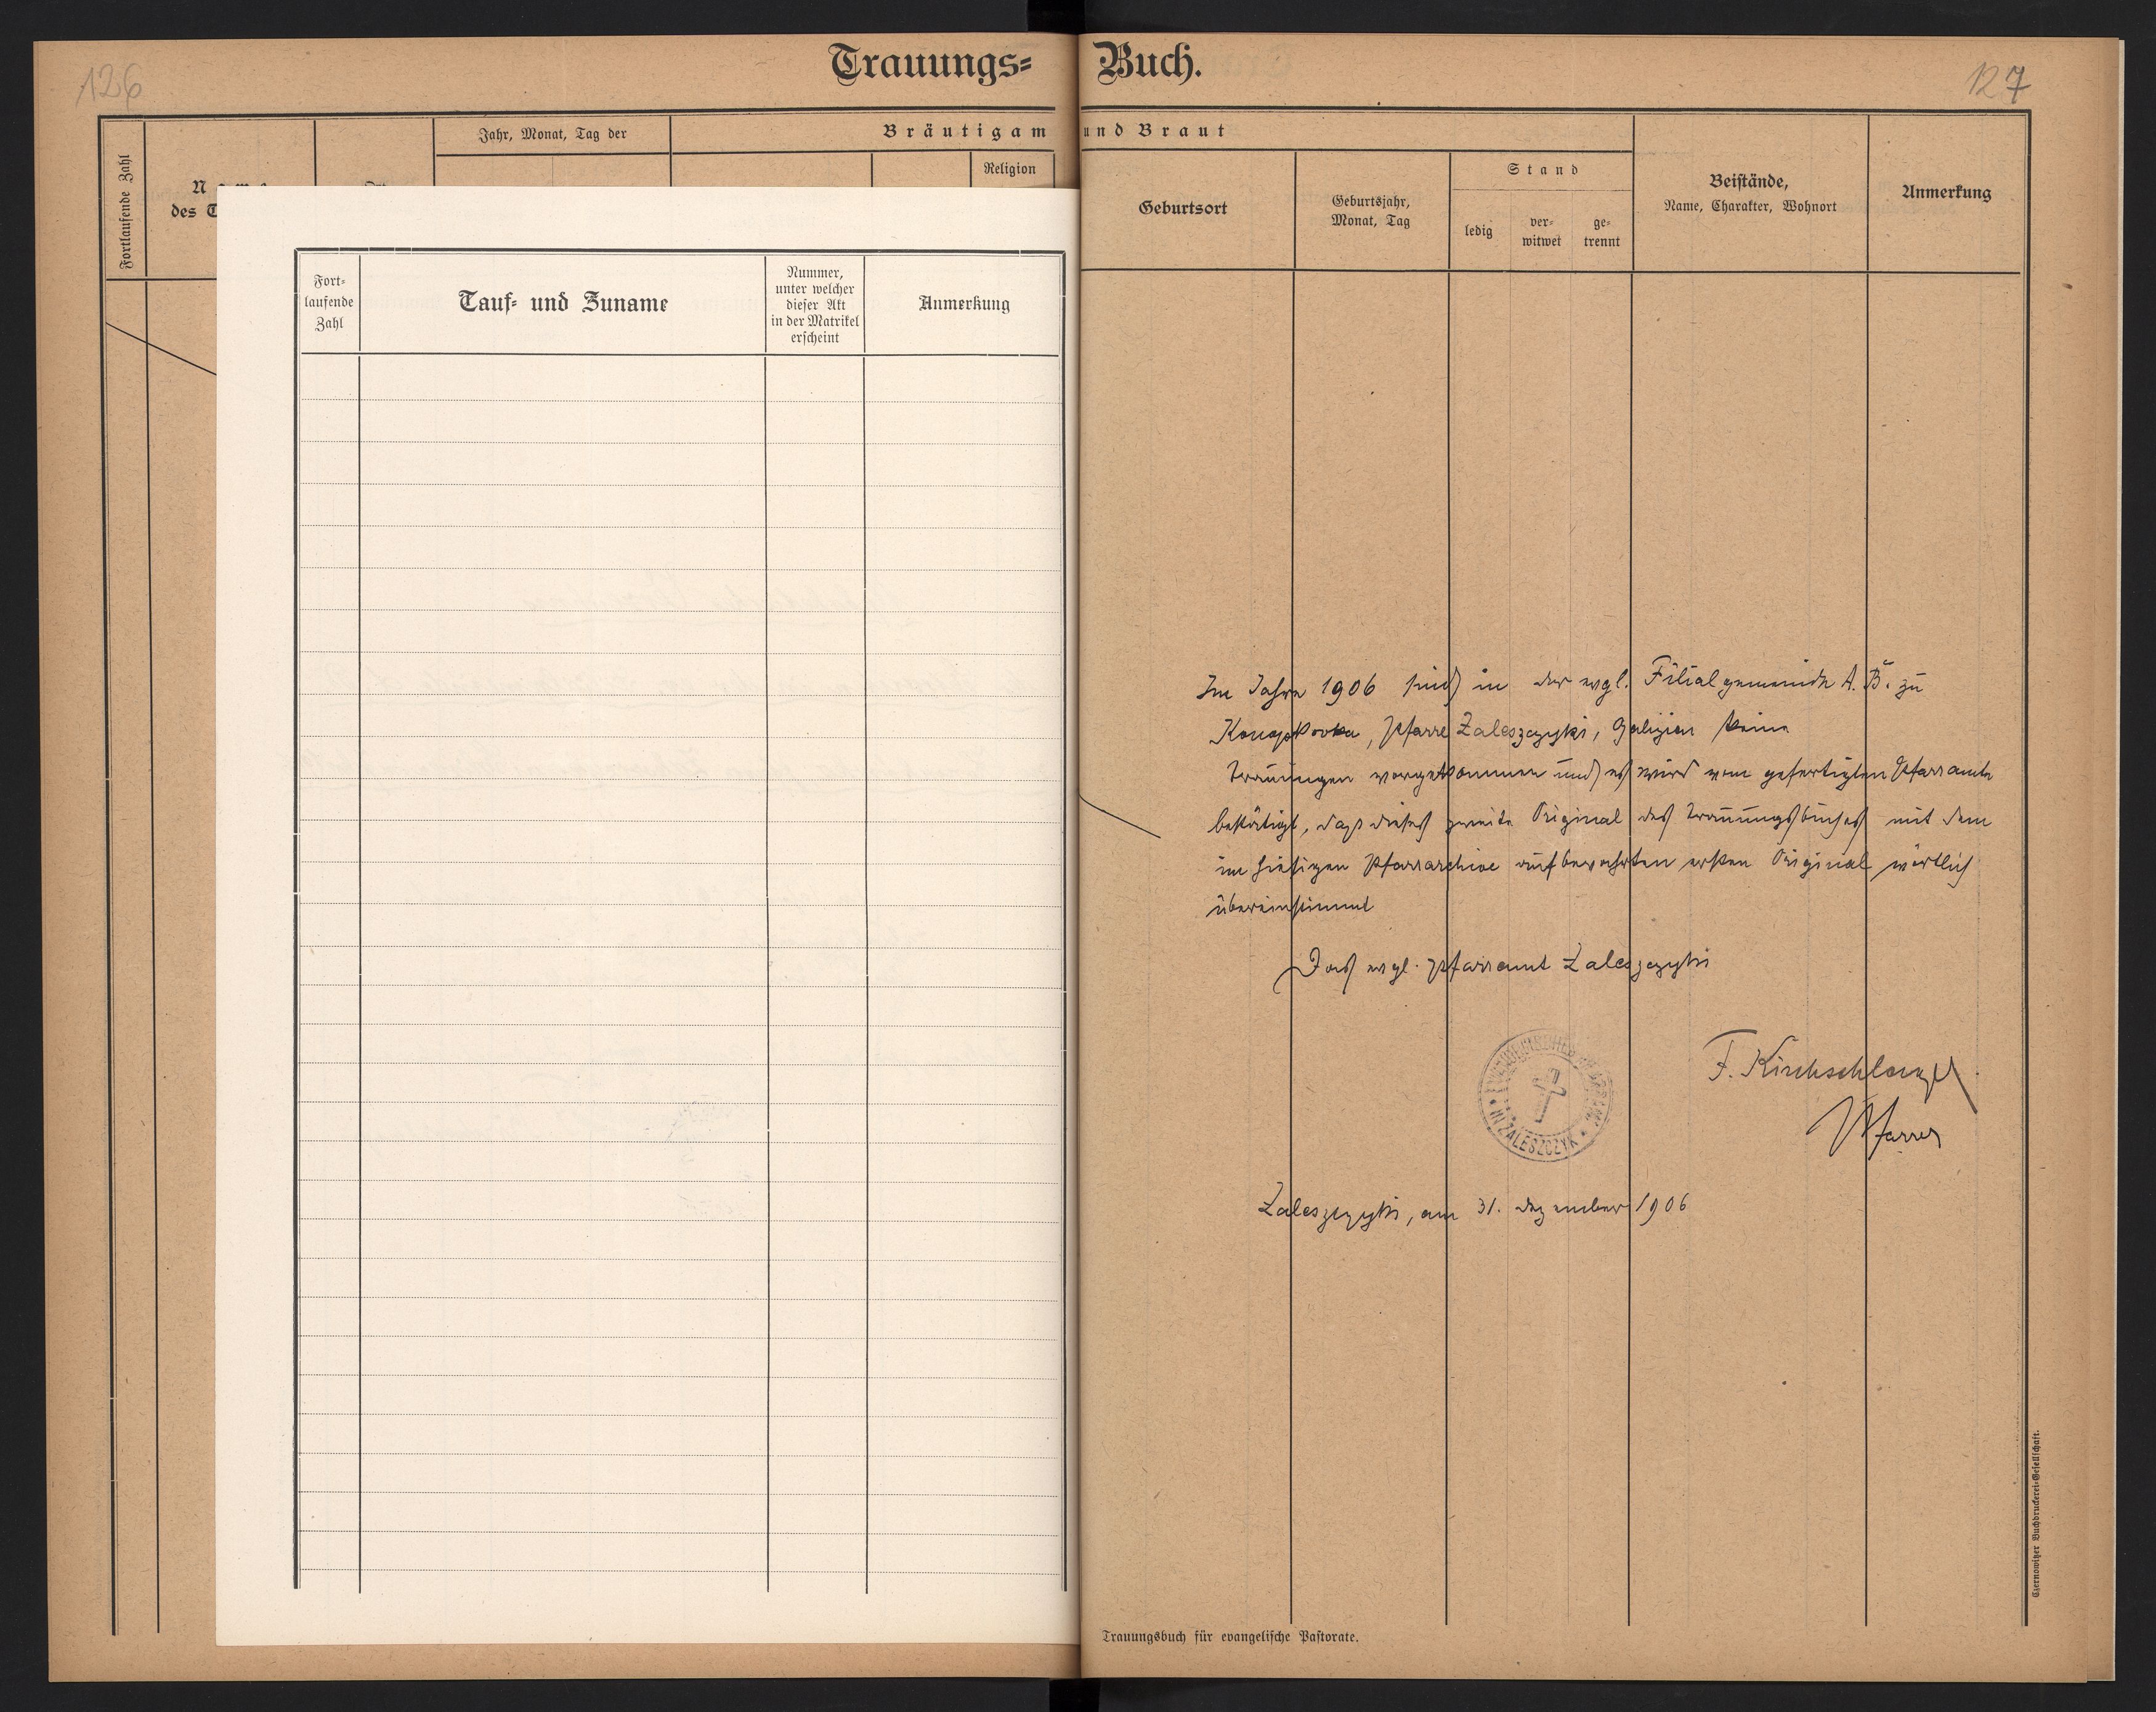 126
Trauungs= Buch.
127
Fortlaufende Zahl
Jahr, Monat, Tag der
Bräutigam und Braut
Religion
des
Geburtsort
Geburtsjahr,
Monat, Tag
Stand
ledig
ver-
witwet
ge-
trennt
Beistände,
Name, Charakter, Wohnort
Anmerkung
Fort-
laufende
Zahl
Tauf- und Zuname
Nummer,
unter welcher
dieser Akt
in der Matrikel
erscheint
Anmerkung
Im Jahre 1906 sind in der evgl. Filialgemeinde A. B. zu
Konopkovka, Pfarre Zaleszczyki, Galizien keine
Trauungen vorgekommen und es wird vom gefertigten Pfarramte
bestätigt, dass dieses zweite Original des Trauungsbuches mit dem
im hiesigen Pfarrarchive aufbewahrten ersten Original wörtlich
übereinstimmt
Das evgl. Pfarramt Zaleszczyki
F. Kirchschlager
Pfarrer
IN ZALESZCZYKI
Zaleszczyki, am 31. Dezember 1906
Trauungsbuch für evangelische Pastorate.
Czernowitzer Buchdruckerei-Gesellschaft.